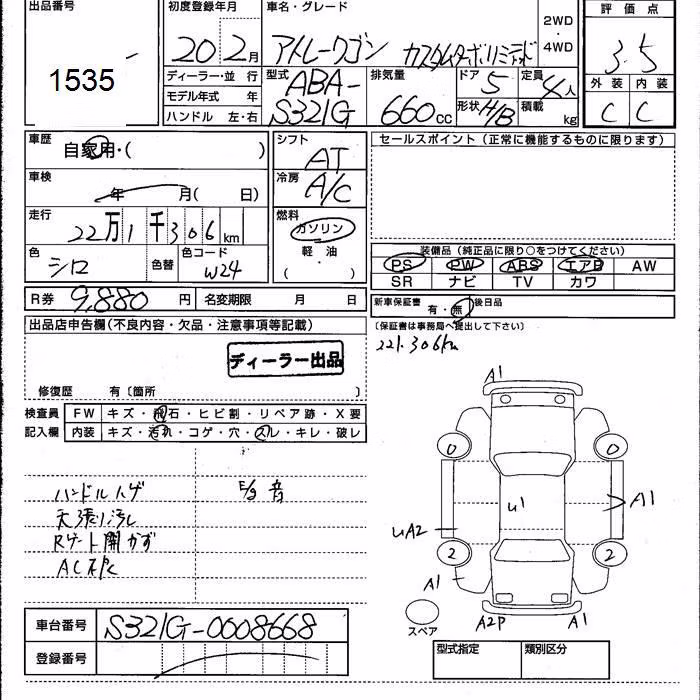 出品番号
1535
初度登録年月
20年2月
車名・グレード
アトレーワゴン カスタムターボリミテッド
2WD
・
4WD
評価点
3.5
外装 内装
C C
ディーラー・並行
モデル年式 年
ハンドル 左・右
型式
ABA-
S321G
排気量
660cc
ドア 5
形状 H/B
定員 4人
積載 kg
車歴
自家用・( )
車検
年 月( 日)
走行
22万1千306km
色
シロ
色替
色コード
W24
シフト
AT
冷房
A/C
燃料
ガソリン
軽・油
( ・ )
セールスポイント(正常に機能するものに限ります)
装備品(純正品に限り○をつけてください)
PS PW ABS エアB AW
SR ナビ TV カワ
R券 9,880円 名変期限 月 日
新車保証書 有・無 後日品
(保証書は事務局へ提出して下さい)
221,306km
出品店申告欄(不良内容・欠品・注意事項等記載)
ディーラー出品
修復歴 有〔箇所 〕
検査員 FW キズ・飛石・ヒビ割・リペア跡・X要
記入欄 内装 キズ・汚れ・コゲ・穴・スレ・キレ・破レ
ハンドルハゲ E/g 音
天張り汚レ
Rゲート開かず
AC不良
A1
0 0
U1
A1
UA2
2 2
A1
A2P A1
スペア
車台番号 S321G-0008668
登録番号
型式指定 類別区分